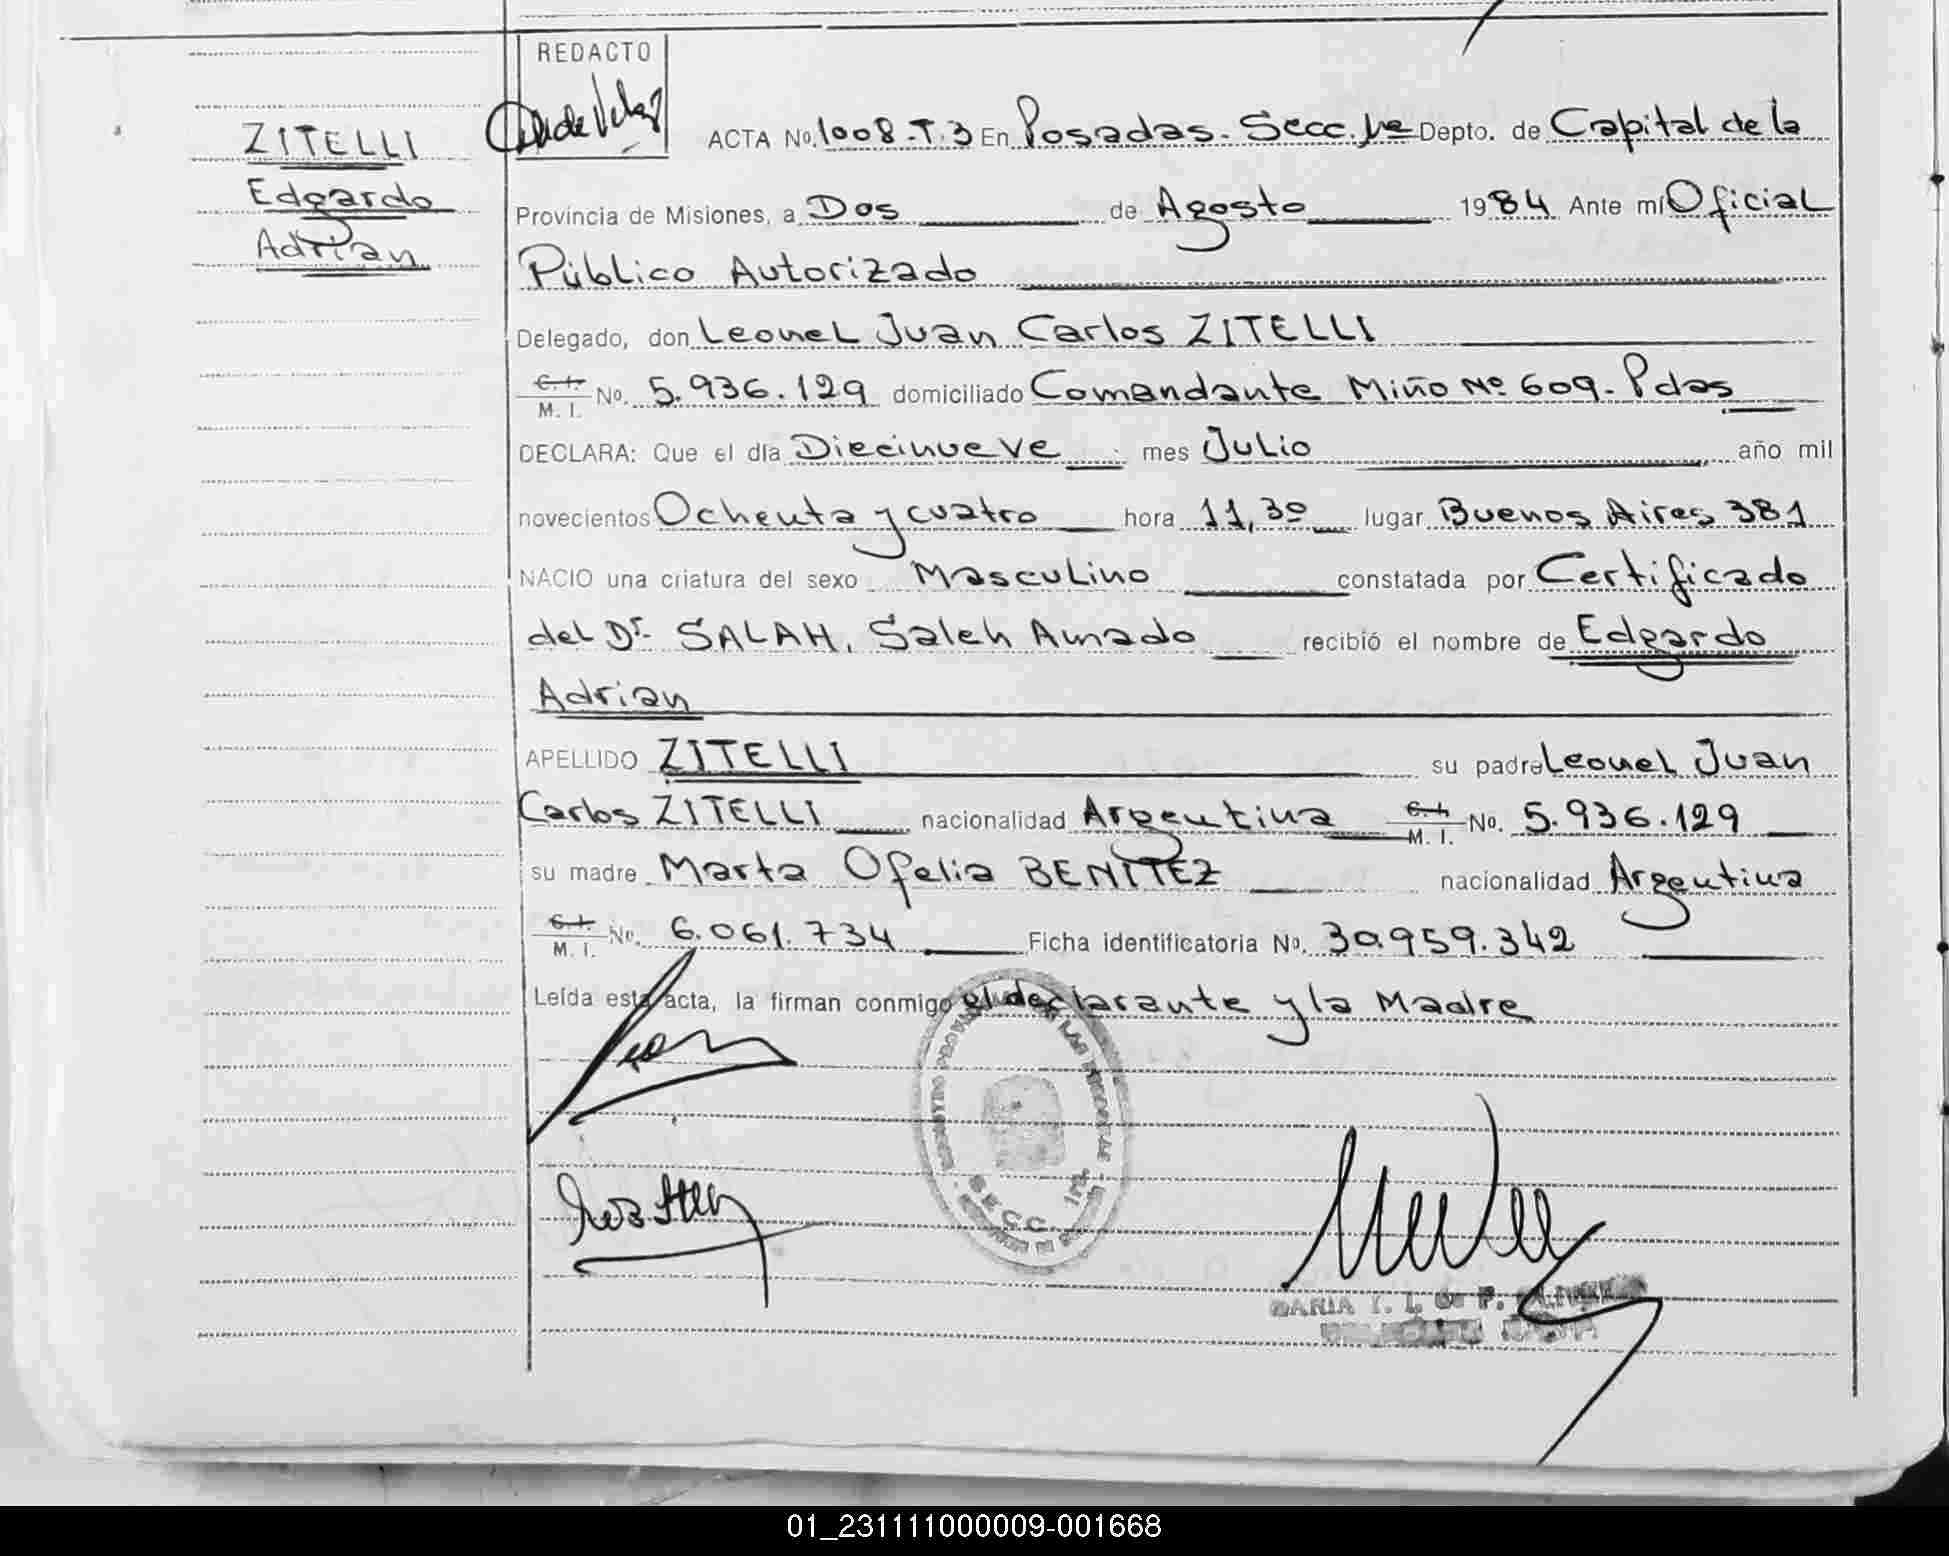 REDACTO
ZITELLI
Edgardo
Adrian
ACTA No. 1008-T.3 En Posadas. Secc. 1ra Depto. de Capital de la
Provincia de Misiones, a Dos de Agosto 1984 Ante mí Oficial
Público Autorizado
Delegado, don Leonel Juan Carlos ZITELLI
C.I. M.I. No. 5.936.129 domiciliado Comandante Miño Nº 609- Pdas
DECLARA: Que el día Diecinueve mes Julio año mil
novecientos Ochenta y cuatro hora 11,30 lugar Buenos Aires 381
NACIO una criatura del sexo Masculino constatada por Certificado
del Dr. SALAH, Saleh Amado recibió el nombre de Edgardo
Adrian
APELLIDO ZITELLI su padre Leonel Juan
Carlos ZITELLI nacionalidad Argentina C.I. M.I. No. 5.936.129
su madre Marta Ofelia BENITEZ nacionalidad Argentina
C.I. M.I. No. 6.061.734 Ficha identificatoria No. 30.959.342
Leída esta acta, la firman conmigo el declarante y la Madre
REGISTRO PROVINCIAL DE LAS PERSONAS
SECC. 1ra.
MARIA Y. I. de P.
01_231111000009-001668